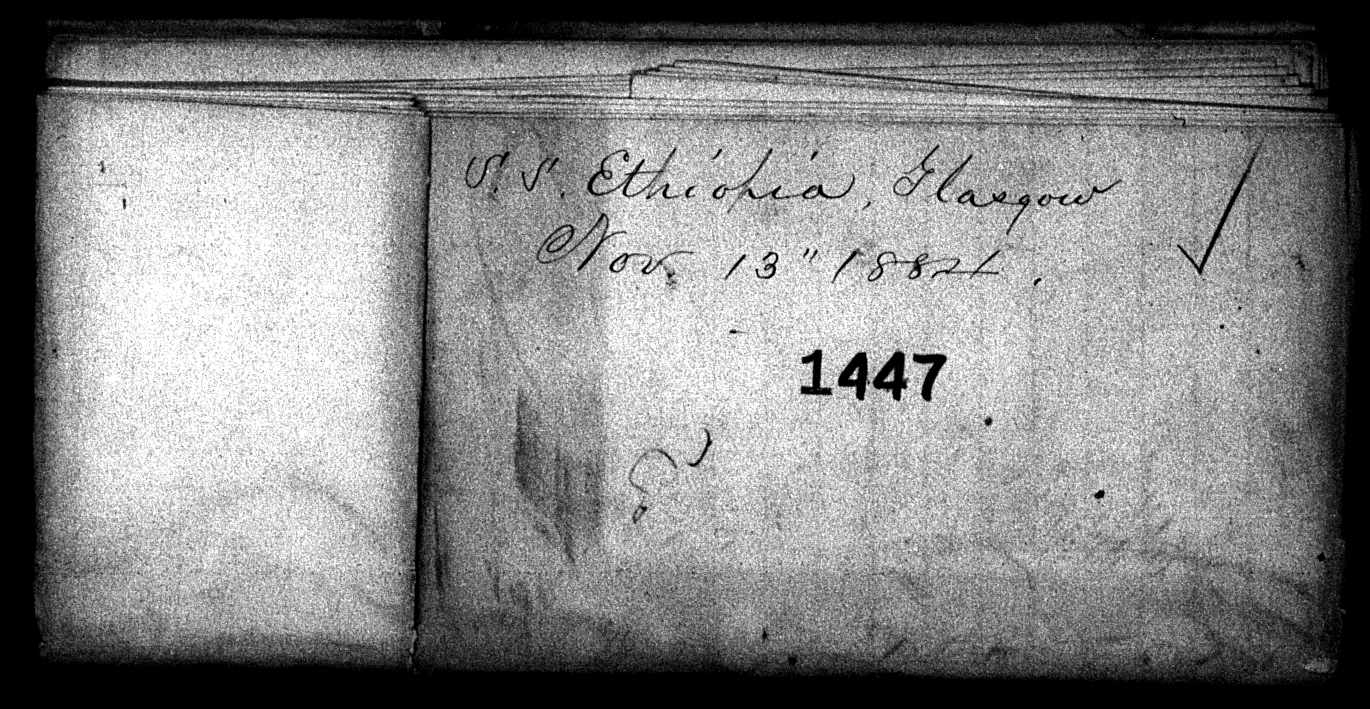 S. S. Ethiopia, Glasgow
Nov. 13" 1884.
1447